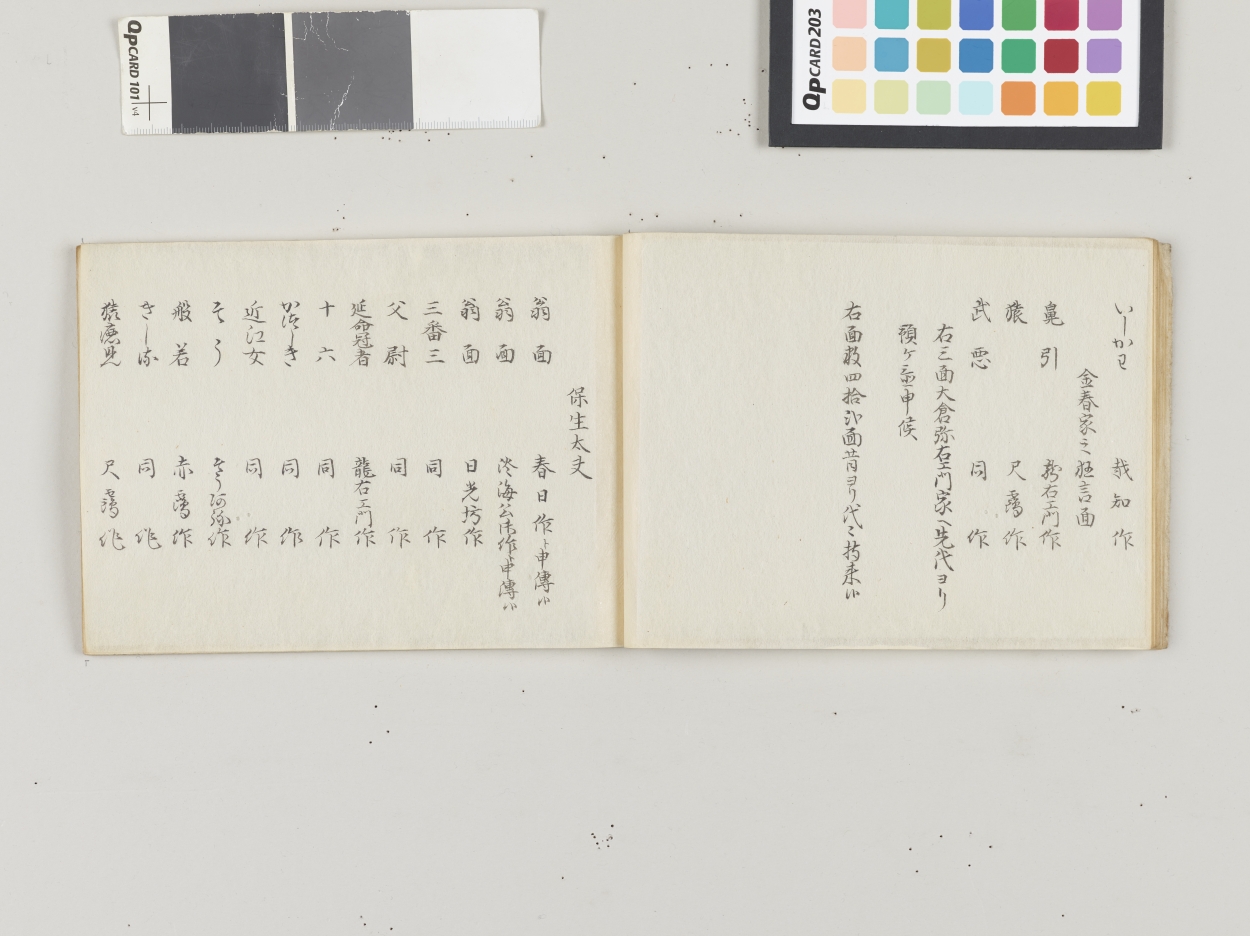 QpCARD 101 v4
QpCARD 203
いしかわ 哉知 作
金春家之狂言面
鼻引 龍右エ門作
猿 尺鶴作
武悪 同 作
右三面大倉弥右エ門家ヘ先代ヨリ
預ケ置申候
右面数四拾弐面昔ヨリ代々持来候
保生太夫
翁面 春日作ト申傳候
翁面 淡海公御作ト申傳候
翁面 日光坊作
三番三 同 作
父尉 同 作
延命冠者 龍右エ門作
十六 同 作
かつしき 同 作
近江女 同 作
そう そう阿弥作
般若 赤鶴作
さし 同 作
猿 見 尺鶴作